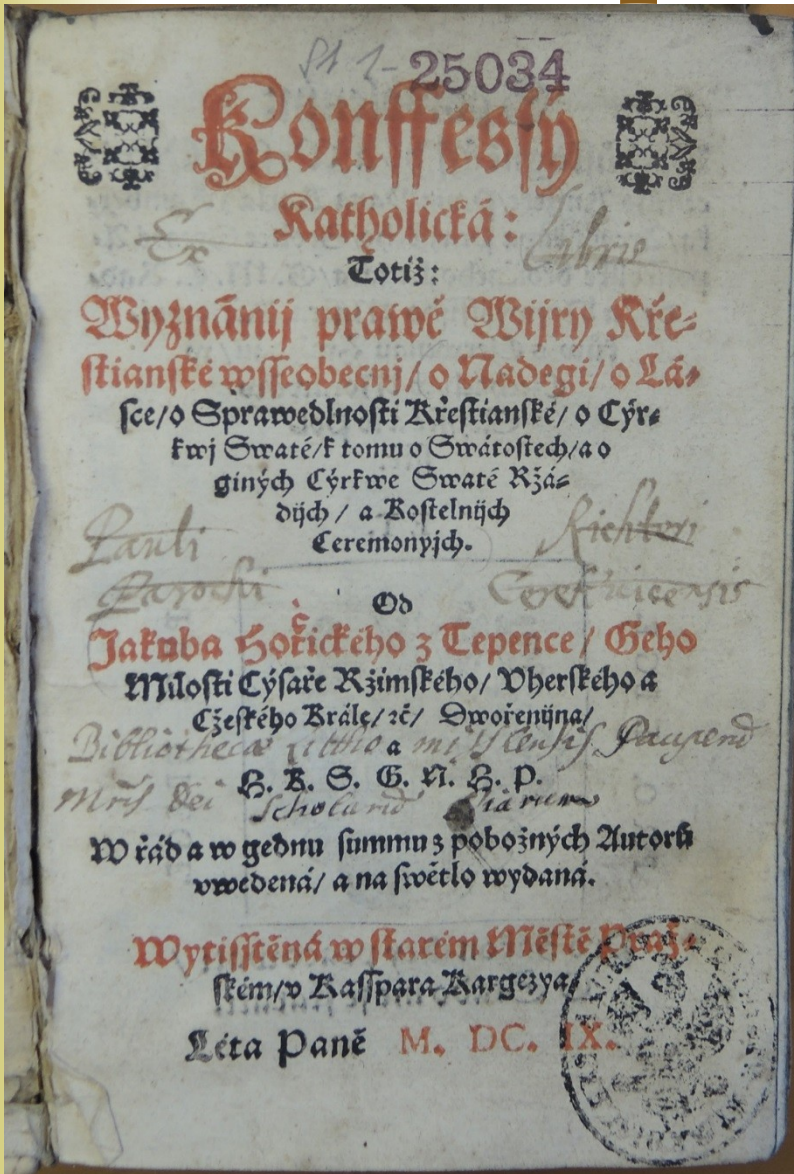 25034
Konffessý
Katholická:
Ex Libris
Totiž:
Wyznánij prawé Wijry Kře-
stianské wsseobecnj / o Nadegi / o Lá-
sce / o Sprawedlnosti Křestianské / o Cýr-
kwj Swaté / k tomu o Swátostech / a o
giných Cýrkwe Swaté Ržá-
dijch / a Kostelnijch
Ceremonyjch.
Pauli Richteri
Parochi
Od
Jakuba Hořčického z Tepence / Geho
Milosti Cýsaře Ržimského / Vherského a
Cžeského Krále / ꝛč / Dwořenijna /
Bibliothecæ
a
H. K. S. G. N. H. P.
Mr̃is Dei Scholarũ Piarum
W řád a w gednu summu z pobožných Autorů
vwedená / a na swětlo wydaná.
Wytisstěná w starém Městě Praž-
ském / v Kasspara Kargezya /
Léta Paně M. DC. IX.